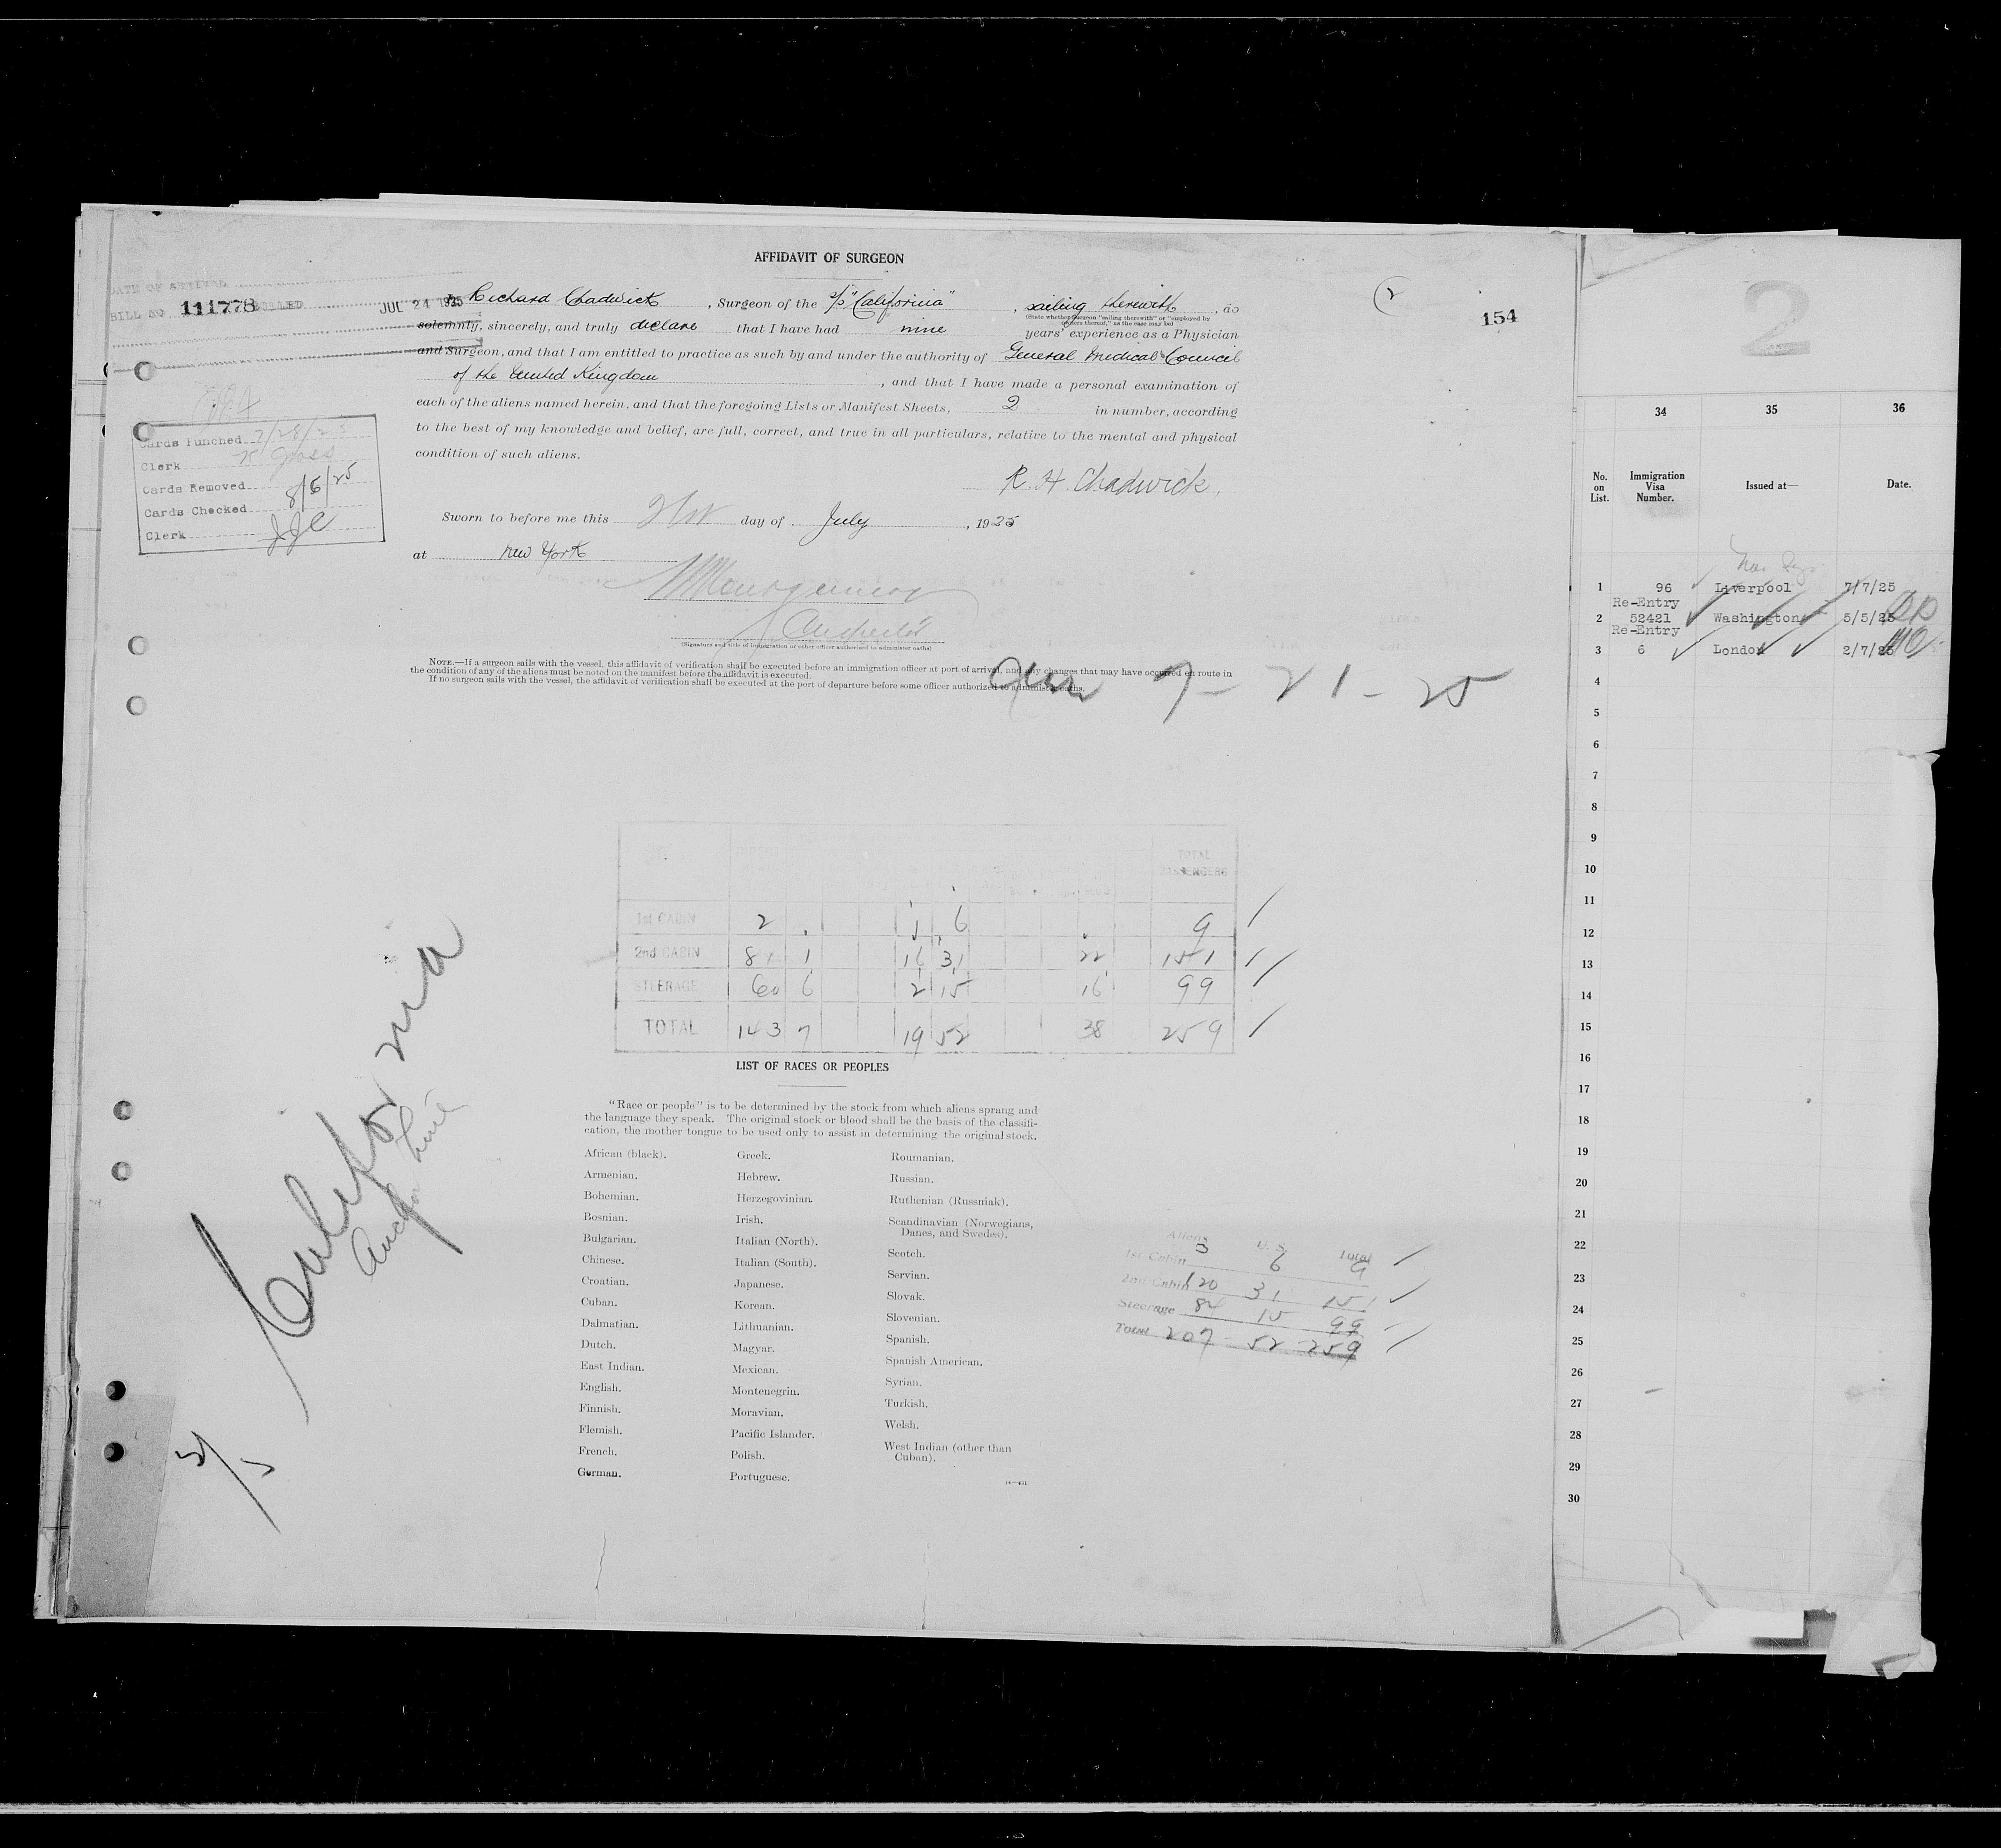 AFFIDAVIT OF SURGEON
DATE OF
BILL NO 111778 BILLED JUL 24 1925
I, Richard Chadwick, Surgeon of the S/S "California", sailing therewith, do
(State whether surgeon "sailing therewith" or "employed by owners thereof," as the case may be)
solemnly, sincerely, and truly declare that I have had nine years' experience as a Physician
and Surgeon, and that I am entitled to practice as such by and under the authority of General Medical Council
of the United Kingdom, and that I have made a personal examination of
each of the aliens named herein, and that the foregoing Lists or Manifest Sheets, 2 in number, according
to the best of my knowledge and belief, are full, correct, and true in all particulars, relative to the mental and physical
condition of such aliens.
R. H. Chadwick.
Sworn to before me this 21st day of July, 1925
at New York
Inspector
(Signature and title of immigration or other officer authorized to administer oaths)
NOTE.—If a surgeon sails with the vessel, this affidavit of verification shall be executed before an immigration officer at port of arrival, and any changes that may have occurred en route in
the condition of any of the aliens must be noted on the manifest before the affidavit is executed.
If no surgeon sails with the vessel, the affidavit of verification shall be executed at the port of departure before some officer authorized to administer oaths.
7-21-25
Cards Punched 7/28/25
Clerk
Cards Removed 8/6/25
Cards Checked
Clerk JJC
2
154
TOTAL PASSENGERS
1st CABIN 2 1 6 9
2nd CABIN 81 1 16 31 22 151
STEERAGE 60 6 2 15 16 99
TOTAL 143 7 19 52 38 259
California
Anchor Line
LIST OF RACES OR PEOPLES
"Race or people" is to be determined by the stock from which aliens sprang and
the language they speak. The original stock or blood shall be the basis of the classifi-
cation, the mother tongue to be used only to assist in determining the original stock.
African (black).
Armenian.
Bohemian.
Bosnian.
Bulgarian.
Chinese.
Croatian.
Cuban.
Dalmatian.
Dutch.
East Indian.
English.
Finnish.
Flemish.
French.
German.
Greek.
Hebrew.
Herzegovinian.
Irish.
Italian (North).
Italian (South).
Japanese.
Korean.
Lithuanian.
Magyar.
Mexican.
Montenegrin.
Moravian.
Pacific Islander.
Polish.
Portuguese.
Roumanian.
Russian.
Ruthenian (Russniak).
Scandinavian (Norwegians,
Danes, and Swedes).
Scotch.
Servian.
Slovak.
Slovenian.
Spanish.
Spanish American.
Syrian.
Turkish.
Welsh.
West Indian (other than
Cuban).
Aliens U. S. Total
1st Cabin 3 6 9
2nd Cabin 120 31 151
Steerage 84 15 99
Total 207 52 259
2
34 35 36
No. on List. Immigration Visa Number. Issued at— Date.
1 96 Liverpool 7/7/25
Re-Entry
2 52421 Washington 5/5/25
Re-Entry
3 6 London 2/7/25
4
5
6
7
8
9
10
11
12
13
14
15
16
17
18
19
20
21
22
23
24
25
26
27
28
29
30